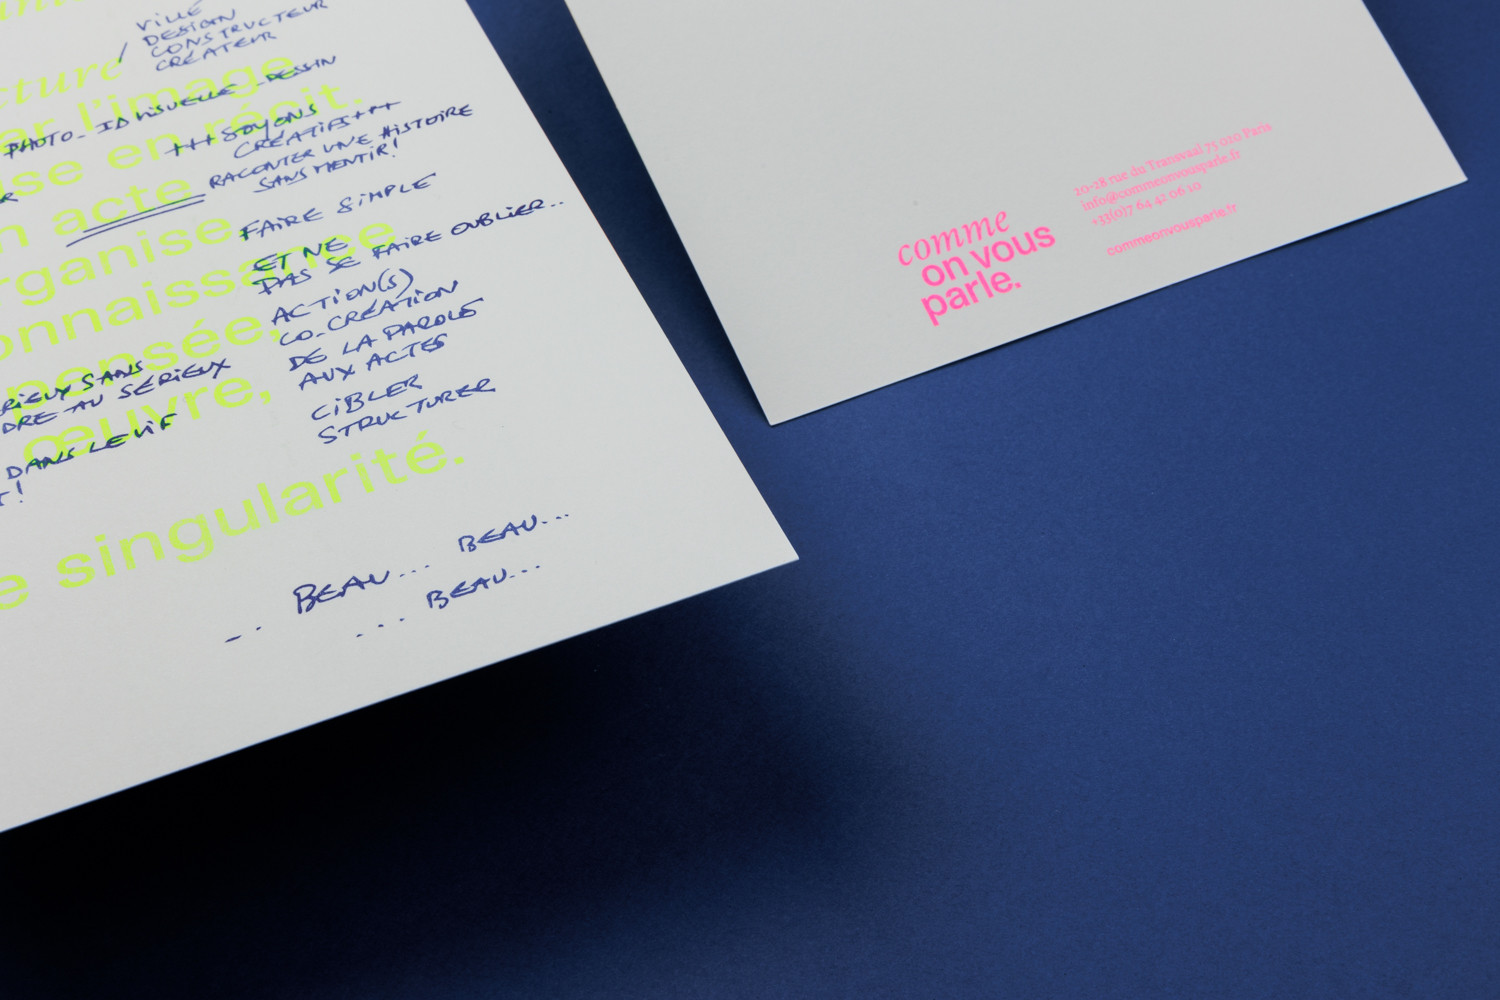 VILLE
DESIGN
CONSTRUCTEUR
CRÉATEUR
PHOTO_ID VISUELLE_DESSIN
+++ SOYONS
CRÉATIFS+++
RACONTER UNE HISTOIRE
SANS MENTIR!
FAIRE SIMPLE
ET NE
PAS SE FAIRE OUBLIER..
ACTION(S)
CO-CRÉATION
DE LA PAROLE
AUX ACTES
CIBLER
STRUCTURER
SANS
AU SÉRIEUX
DANS LE VIF
BEAU... BEAU...
... BEAU...
l'image
en récit.
acte
pensée,
œuvre,
singularité.
comme
on vous
parle.
20-28 rue du Transvaal 75 020 Paris
info@commeonvousparle.fr
+33(0)7 64 42 06 10
commeonvousparle.fr